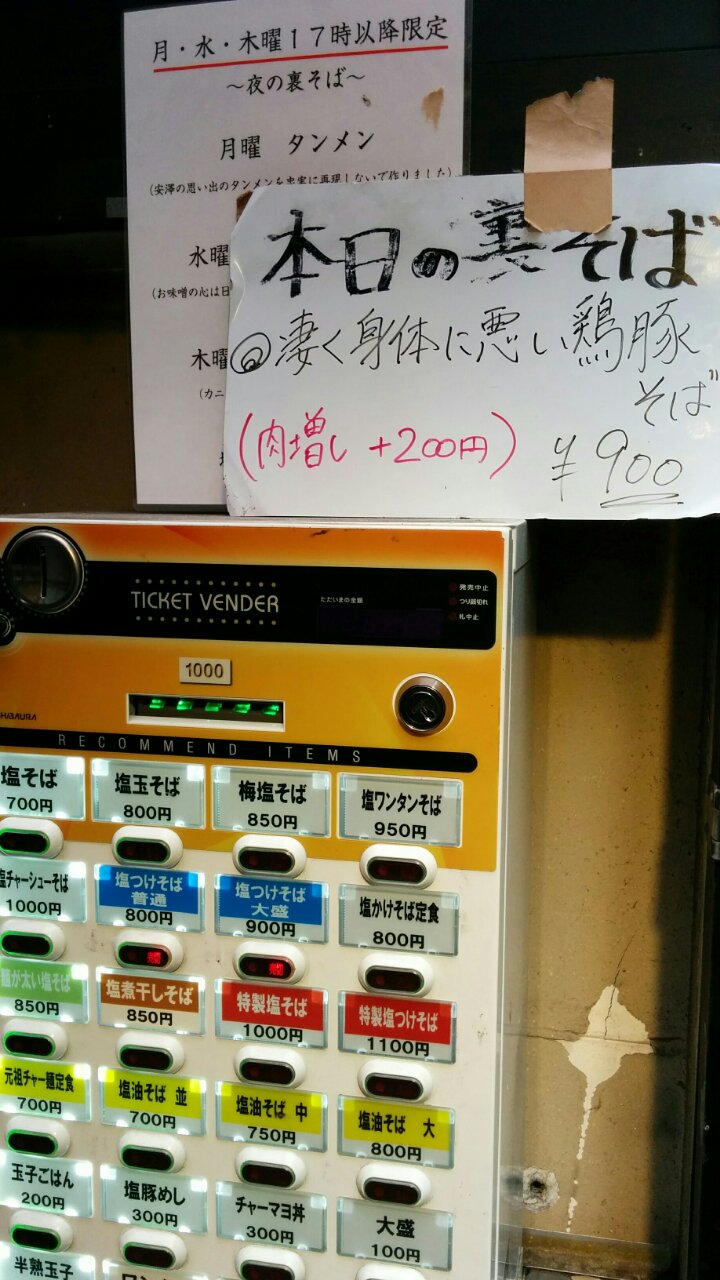 月・水・木曜１７時以降限定
～夜の裏そば～
月曜　タンメン
(安澤の思い出のタンメンを忠実に再現しないで作りました)
水曜
(お味噌の心は日
木曜
(カニ
本日の裏そば
凄く身体に悪い鶏豚
そば
(肉増し +200円)
¥900
TICKET VENDER
ただいまの金額
発売中止
つり銭切れ
札中止
1000
SHIBAURA
RECOMMEND ITEMS
塩そば
700円
塩玉そば
800円
梅塩そば
850円
塩ワンタンそば
950円
塩チャーシューそば
1000円
塩つけそば
普通
800円
塩つけそば
大盛
900円
塩かけそば定食
800円
麺が太い塩そば
850円
塩煮干しそば
850円
特製塩そば
1000円
特製塩つけそば
1100円
元祖チャー麺定食
700円
塩油そば 並
700円
塩油そば 中
750円
塩油そば 大
800円
玉子ごはん
200円
塩豚めし
300円
チャーマヨ丼
300円
大盛
100円
半熟玉子